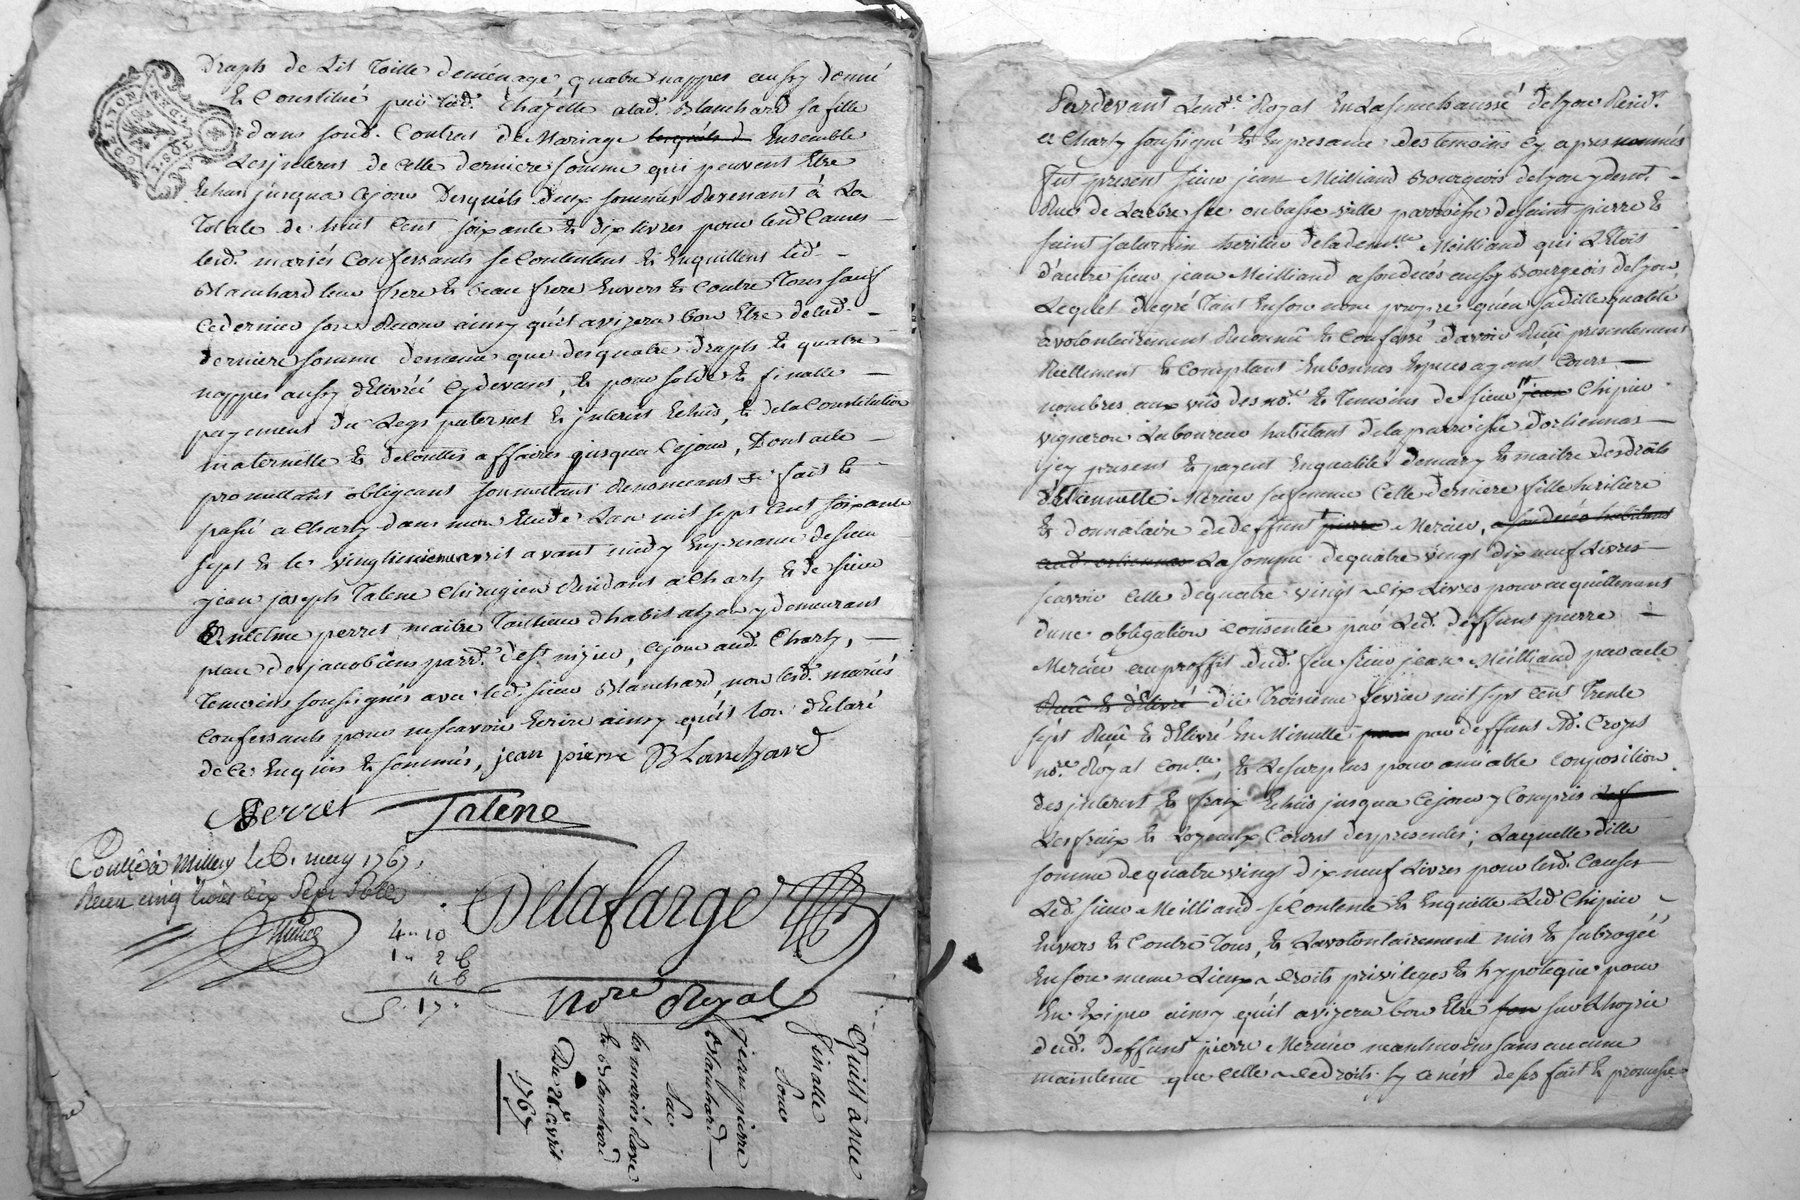 draps de Lit Toille demenage quatre nappes aussy donné
& Constitué par lad. Chazelle alad. Blanchard sa fille
dans sond. Contrat de Mariage Ensemble
Les jnterets de Celle derniere somme qui peuvent Etre
Echus jusqua Cejour Desquels deux sommes Revenant à La
Totale de huit Cent soixante & dix livres pour lesd. Causes
lesd. mariés Confessants se Contentent & Enquittent led.
Blanchard leur frere & beau frere Envers & Contre Tous sauf
Cedernier son Recour ainsy quil avizera bon Etre delad.
derniere somme dememe que desquatre drapts & quatre
nappes aussy delivréé cydevant, & pour solde & finalle
payement du Legs paternel & jnterets Echus, & dela Constitution
maternelle & detouttes affaires jusqua Cejour, Dont acte
promettant obligeant soumettant Renonceant & fait &
passé a Charly dans mon Etude Lan mil sept Cent soixante
sept & le avril avant midy En presance desieur
jean joseph Talene Chirurgien Residant à Charly & de sieur
Perret maitre Tailleur dhabit alyon y demeurant
place des jacobiens parr. dest nizier, cejour aud. Charly,
Temoins soussignés avec led. sieur Blanchard, non lesd. mariés
Confessants pour nescavoir Ecrire ainsy quils lon déclaré
dece Enquis & sommés, jean pierre Blanchard
Perret Talene
Conllé à Millery le 6. may 1767.
Recu cinq livres dix sept sols
Delafarge
4 " 10
1 " 2 6
4 6
5. 17.
Nore Royal
Quittance
finalle
Pour
jean pierre
Blanchard
Par
les mariés
& Blanchard
Du 20e avril
1767
Pardevant Lenore. Royal En La senechaussé delyon Resid.
a Charly soussigné & En presance des temoins cy apres nommés
fut present sieur jean Meilliand Bourgeois delyon y demt.
Rue de Larbre sec ou basse ville parroisse desaint pierre &
saint saturnin heritier delademlle. Meilliand qui Letoit
dautre sieur jean Meilliand asondecés aussy Bourgeois delyon,
Lequel degré Tant En son nom propre quén sadille qualité
avolontairement Reconnû & Confessé davoir Recû presentement
Reellement & Comptant En bonnes Especes ayant Cours
nombrés aux vüs des nore. & Temoins de sieur jean Chipier
vigneron Laboureur habitant dela parroisse dorliennas
jcy present & payent En qualité demary & maitre des droits
dEtiennette Mercier safemme Celle derniere fille heritiere
& donnataire dedeffunt pierre Mercier, asondeces habitant
aud. orliennas La somme dequatre vingt dix neuf Livres
scavoir Celle dequatre vingt dix Livres pour acquittement
dune obligation Consentie par Led. deffunt pierre
Mercier au proffit dud. feu sieur jean Meilliand par acte
Recû & délivré du Troisieme fevrier mil sept Cent Trente
sept Recû & délivré En Minutte par deffunt Me. Crops
nore. Royal & Lesurplus pour amiable Composition
des jnterets & fraix Echüs jusqua Cejour y Compris
Lesfraix & Loyeaux Couts despresentes; Laquelle ditte
somme dequatre vingt dix neuf Livres pour lesd. Causes
Led. sieur Meilliand se Contente & Enquitte Led. Chipier
Envers & Contre Tous, & La volontairement mis & subrogéé
En son meme Lieux droits privileges & hypoteque pour
En Exiper ainsy quil avizera bon Etre sur Lhoyrie
dud. deffunt pierre Mercier neanmoins sans aucune
maintenue que Celle de droits. sy cenést de ses fait & promesse